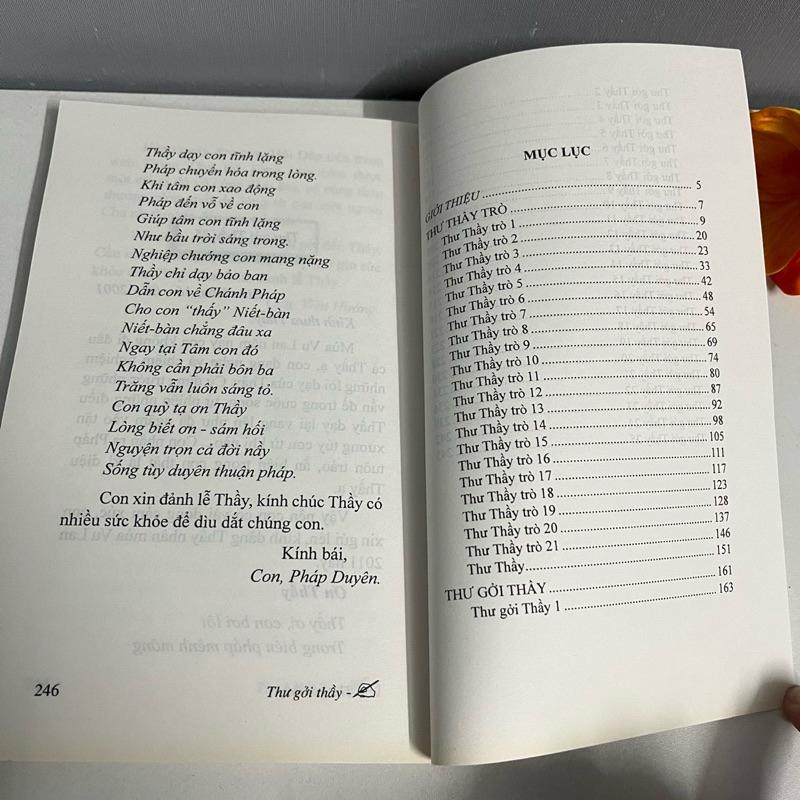 Thầy dạy con tĩnh lặng
Pháp chuyển hóa trong lòng.
Khi tâm con xao động
Pháp đến vỗ về con
Giúp tâm con tĩnh lặng
Như bầu trời sáng trong.
Nghiệp chướng con mang nặng
Thầy chỉ dạy bảo ban
Dẫn con về Chánh Pháp
Cho con “thấy” Niết-bàn
Niết-bàn chẳng đâu xa
Ngay tại Tâm con đó
Không cần phải bôn ba
Trăng vẫn luôn sáng tỏ.
Con quỳ tạ ơn Thầy
Lòng biết ơn - sám hối
Nguyện trọn cả đời nầy
Sống tùy duyên thuận pháp.
Con xin đảnh lễ Thầy, kính chúc Thầy có
nhiều sức khỏe để dìu dắt chúng con.
Kính bái,
Con, Pháp Duyên.
246
Thư gởi thầy -
MỤC LỤC
GIỚI THIỆU 5
THƯ THẦY TRÒ 7
Thư Thầy trò 1 9
Thư Thầy trò 2 20
Thư Thầy trò 3 23
Thư Thầy trò 4 33
Thư Thầy trò 5 42
Thư Thầy trò 6 48
Thư Thầy trò 7 54
Thư Thầy trò 8 65
Thư Thầy trò 9 69
Thư Thầy trò 10 74
Thư Thầy trò 11 80
Thư Thầy trò 12 87
Thư Thầy trò 13 92
Thư Thầy trò 14 98
Thư Thầy trò 15 105
Thư Thầy trò 16 111
Thư Thầy trò 17 117
Thư Thầy trò 18 123
Thư Thầy trò 19 128
Thư Thầy trò 20 137
Thư Thầy trò 21 146
Thư Thầy 151
THƯ GỞI THẦY 161
Thư gởi Thầy 1 163